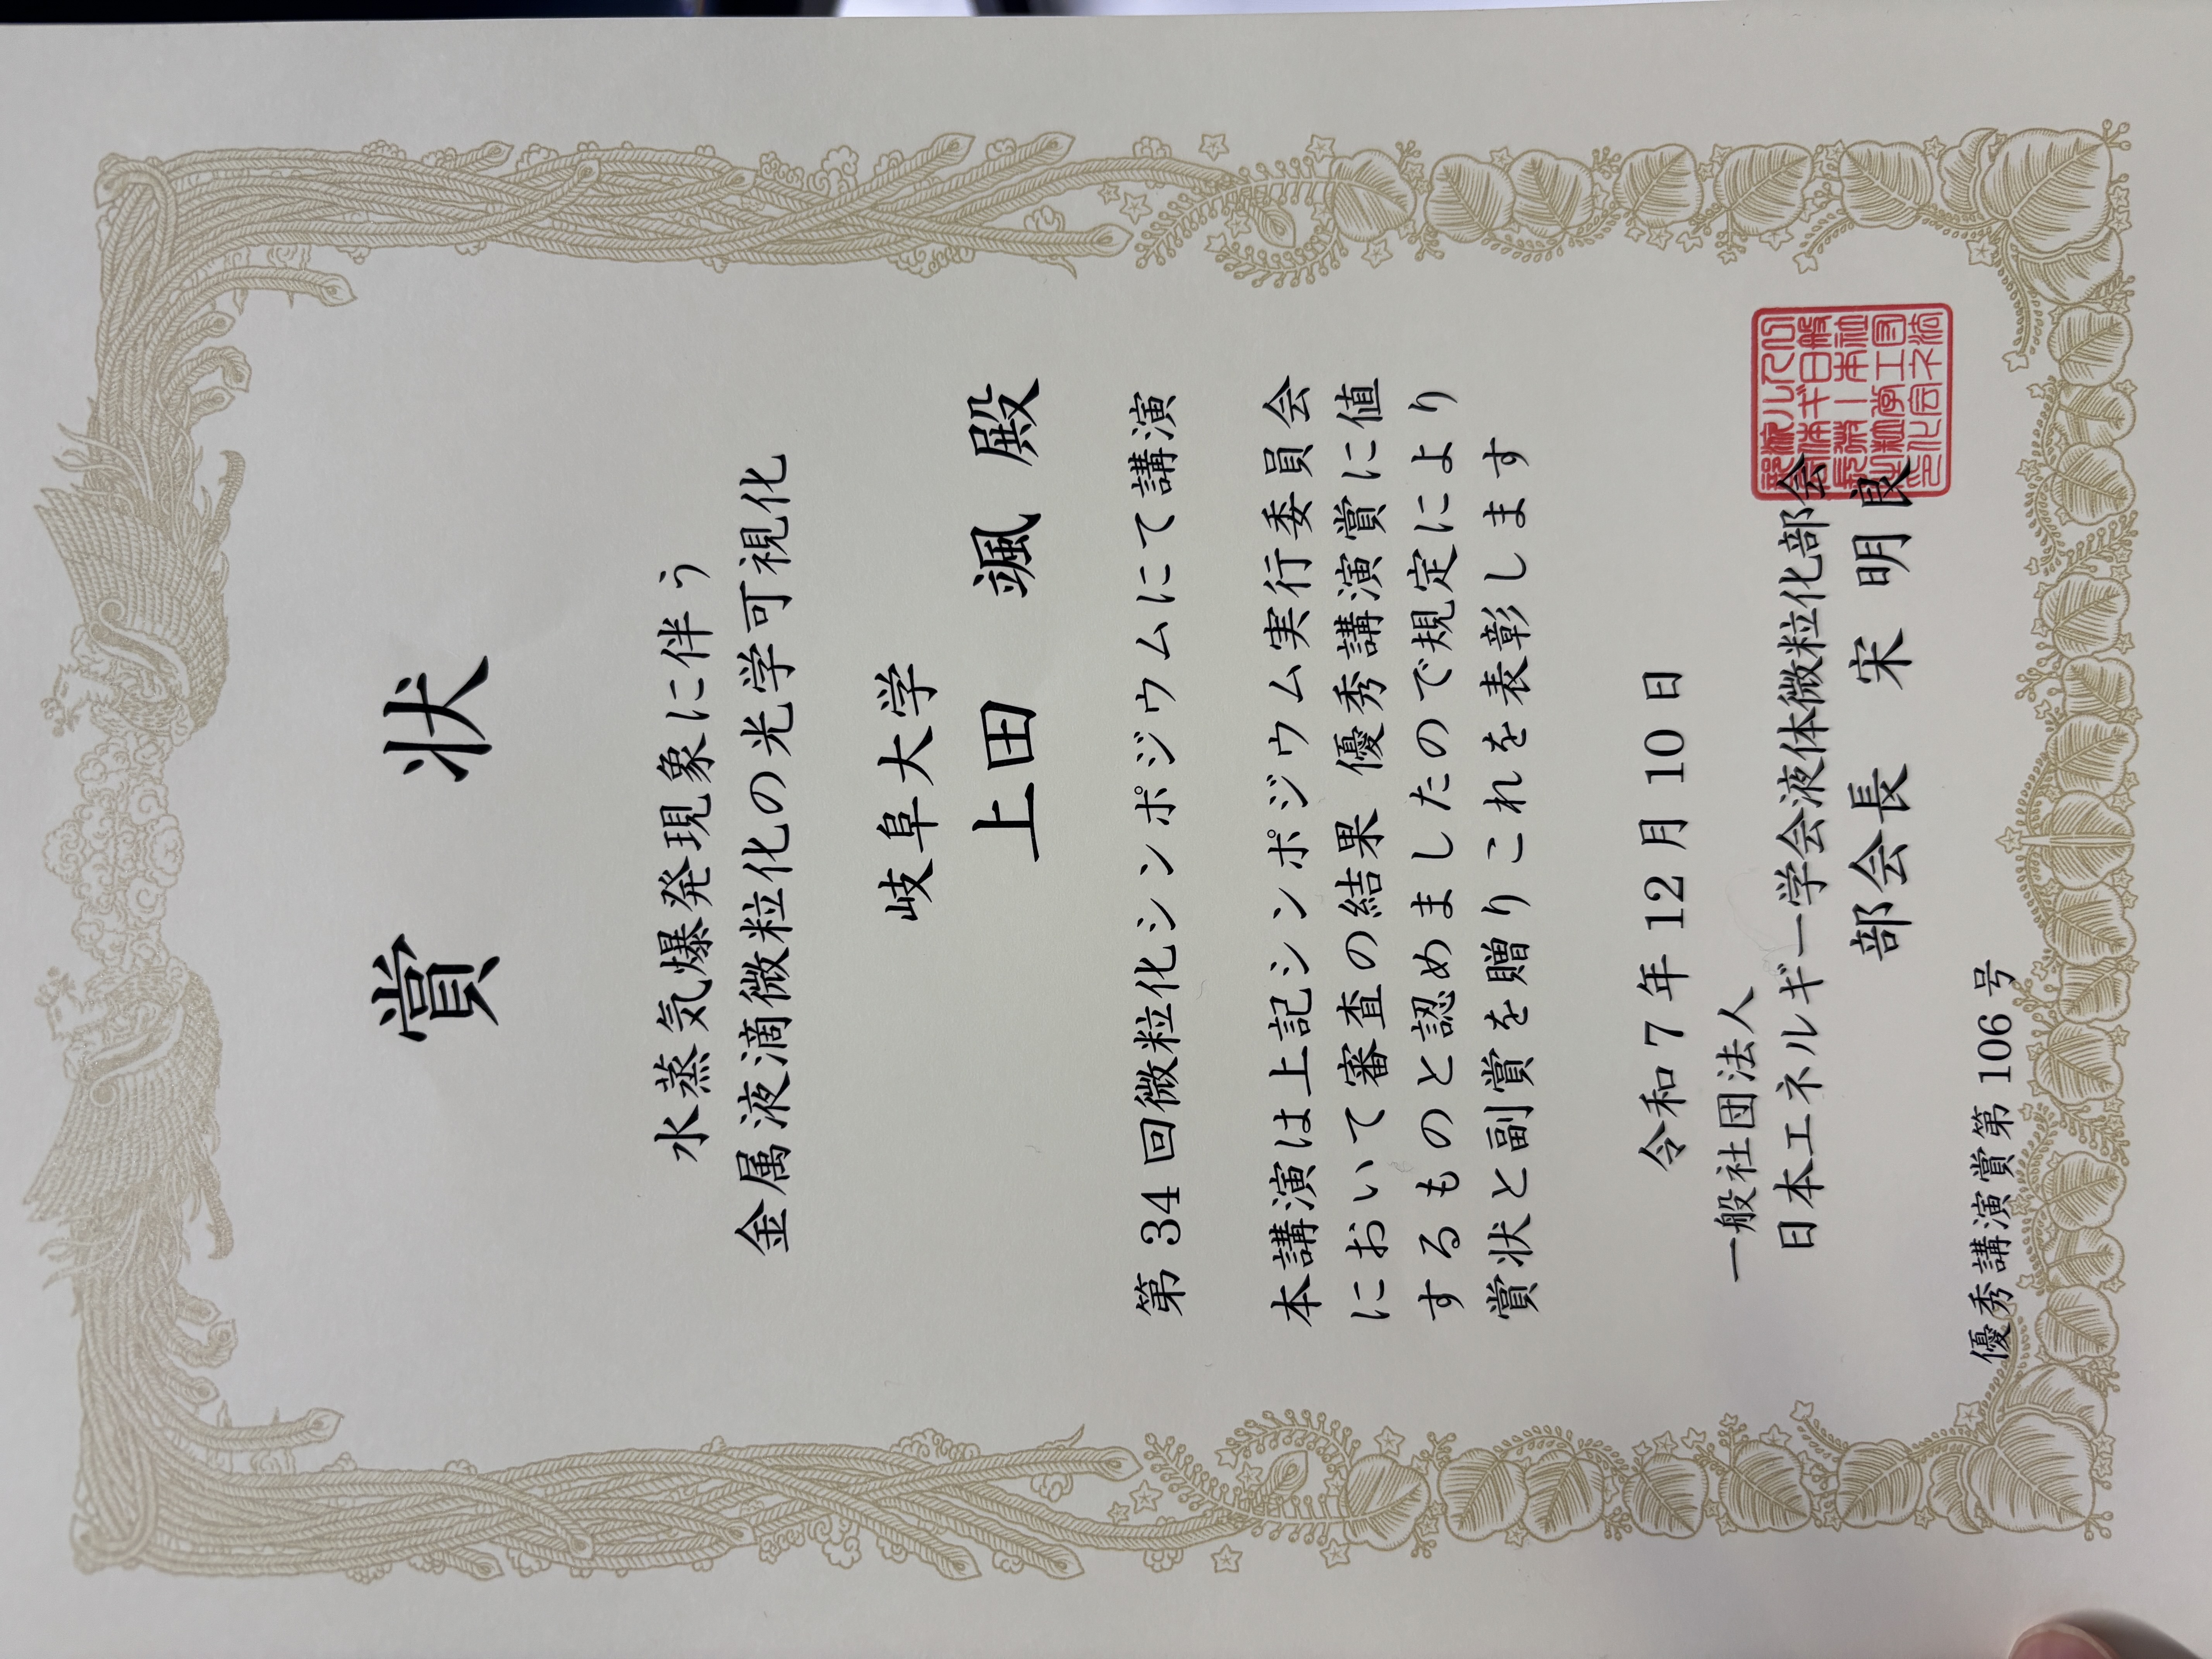 賞状
水蒸気爆発現象に伴う
金属液滴微粒化の光学可視化
岐阜大学
上田 颯 殿
第34回微粒化シンポジウムにて講演
本講演は上記シンポジウム実行委員会
において審査の結果 優秀講演賞に値
するものと認めましたので規定により
賞状と副賞を贈りこれを表彰します
令和7年12月10日
一般社団法人
日本エネルギー学会液体微粒化部会
部会長 宋 明良
優秀講演賞第106号